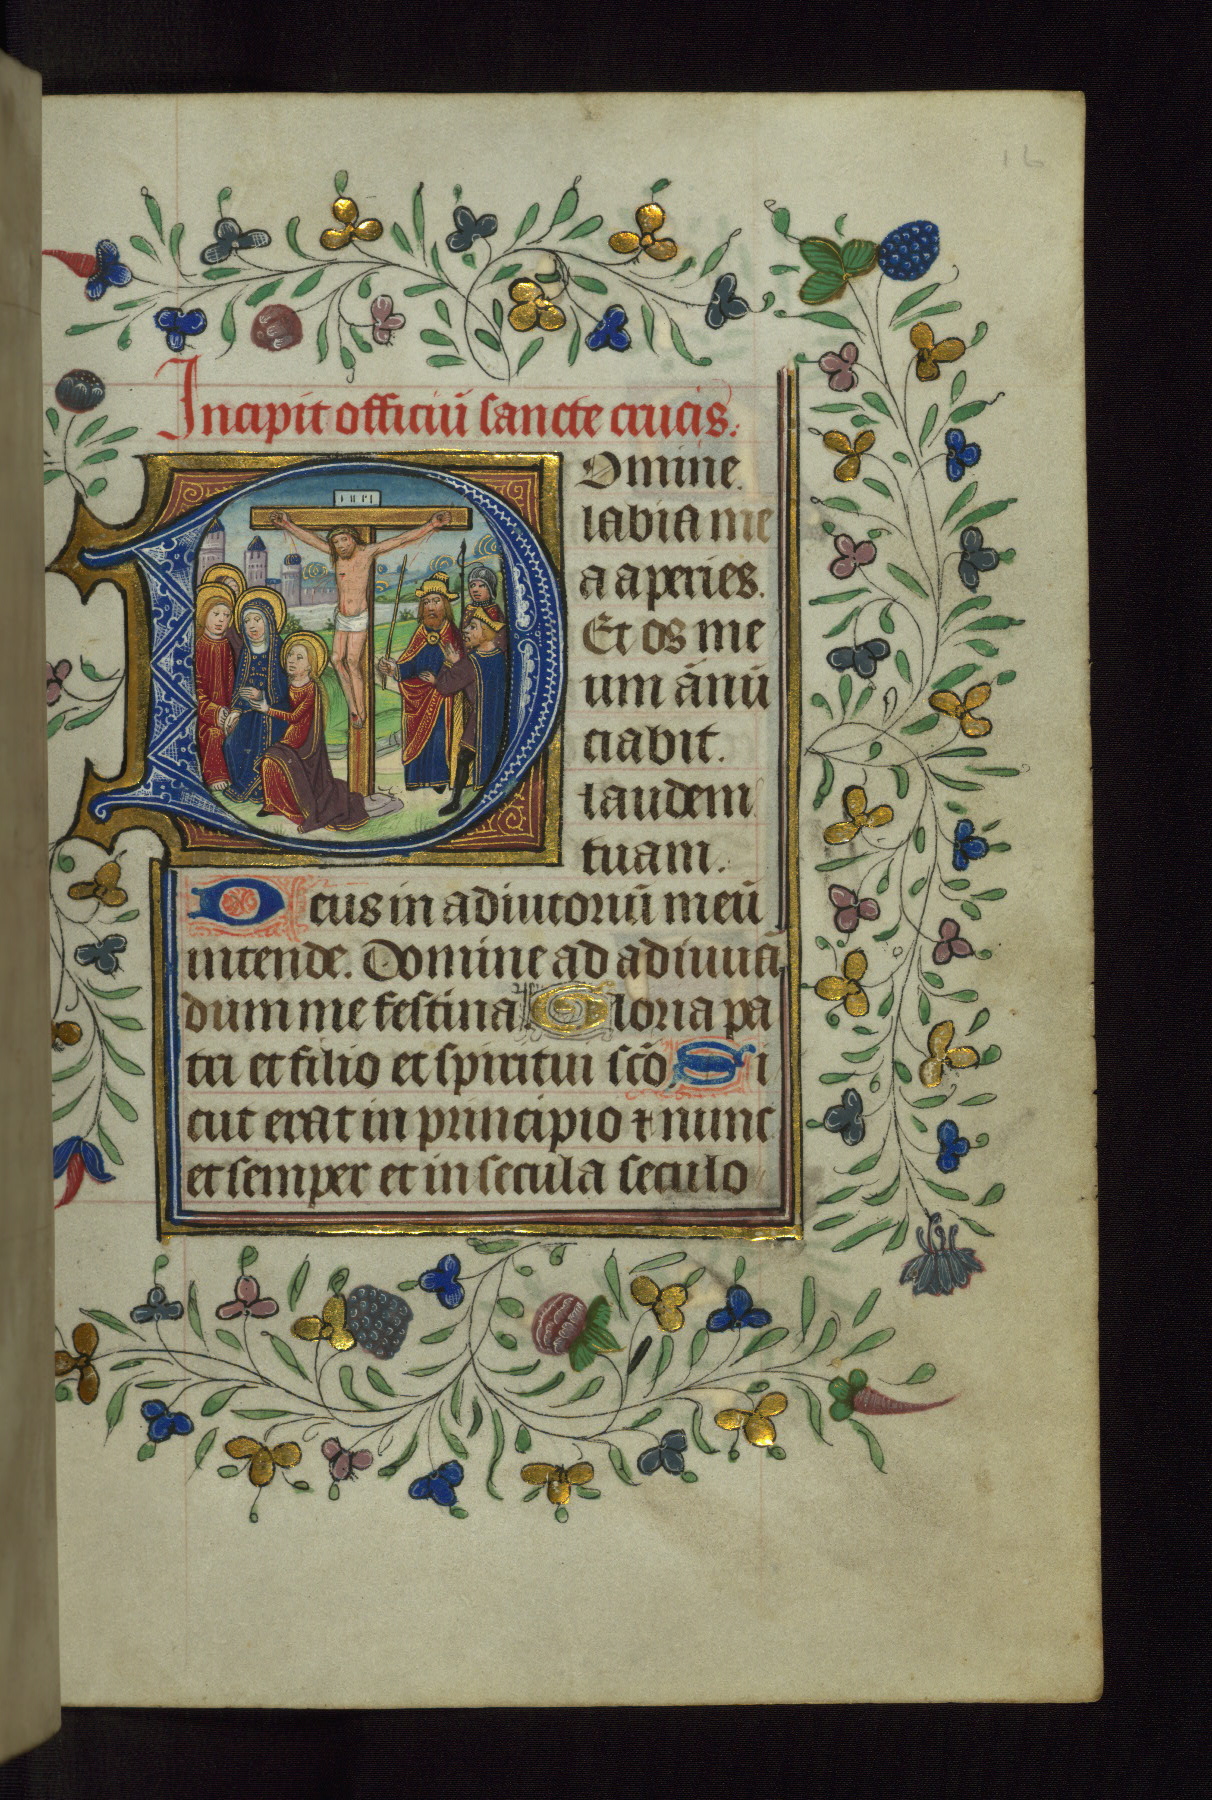 16
INRI
Incipit officiū sancte crucis.
Domine
labia me
a aperies.
Et os me
um ānū
ciabit.
laudem
tuam.
Deus in adiutoriū meū
intende. Domine ad adiuuā
dum me festina Gloria pa
tri et filio et spiritui scō Si
cut erat in principio ⁊ nunc
et semper et in secula seculo